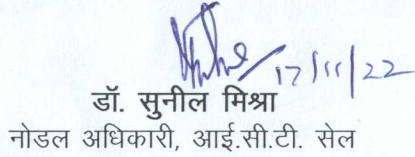 17/11/22
डॉ. सुनील मिश्रा
नोडल अधिकारी, आई.सी.टी. सेल